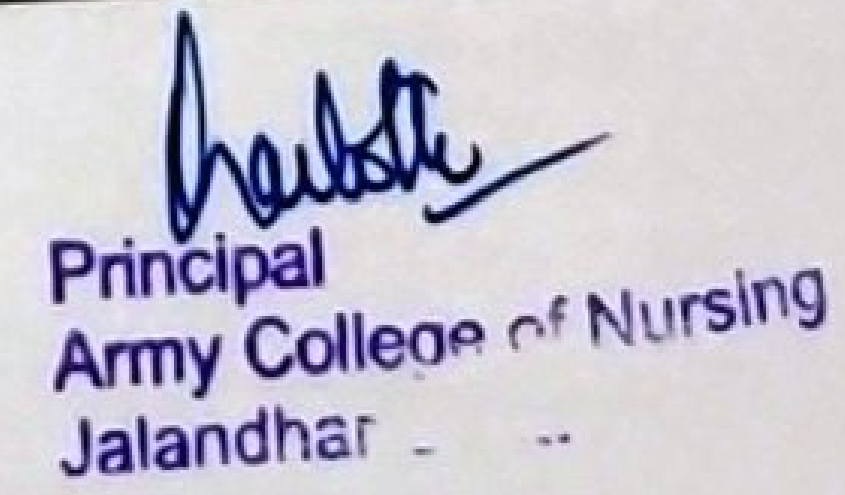 Principal
Army College of Nursing
Jalandhar